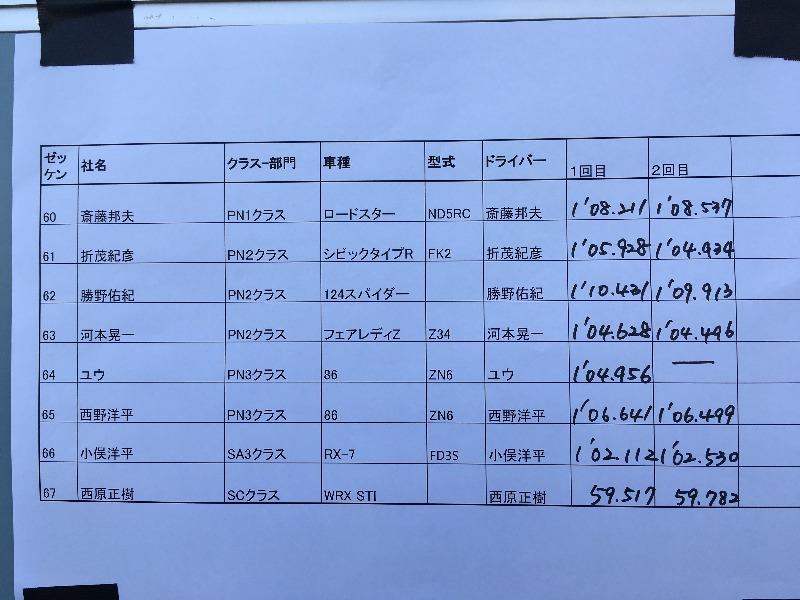 ゼッケン 社名 クラス-部門 車種 型式 ドライバー 1回目 2回目
60 斎藤邦夫 PN1クラス ロードスター ND5RC 斎藤邦夫 1'08.211 1'08.537
61 折茂紀彦 PN2クラス シビックタイプR FK2 折茂紀彦 1'05.928 1'04.934
62 勝野佑紀 PN2クラス 124スパイダー 勝野佑紀 1'10.431 1'09.913
63 河本晃一 PN2クラス フェアレディZ Z34 河本晃一 1'04.628 1'04.496
64 ユウ PN3クラス 86 ZN6 ユウ 1'04.956 —
65 西野洋平 PN3クラス 86 ZN6 西野洋平 1'06.641 1'06.499
66 小俣洋平 SA3クラス RX-7 FD3S 小俣洋平 1'02.112 1'02.530
67 西原正樹 SCクラス WRX STI 西原正樹 59.517 59.782